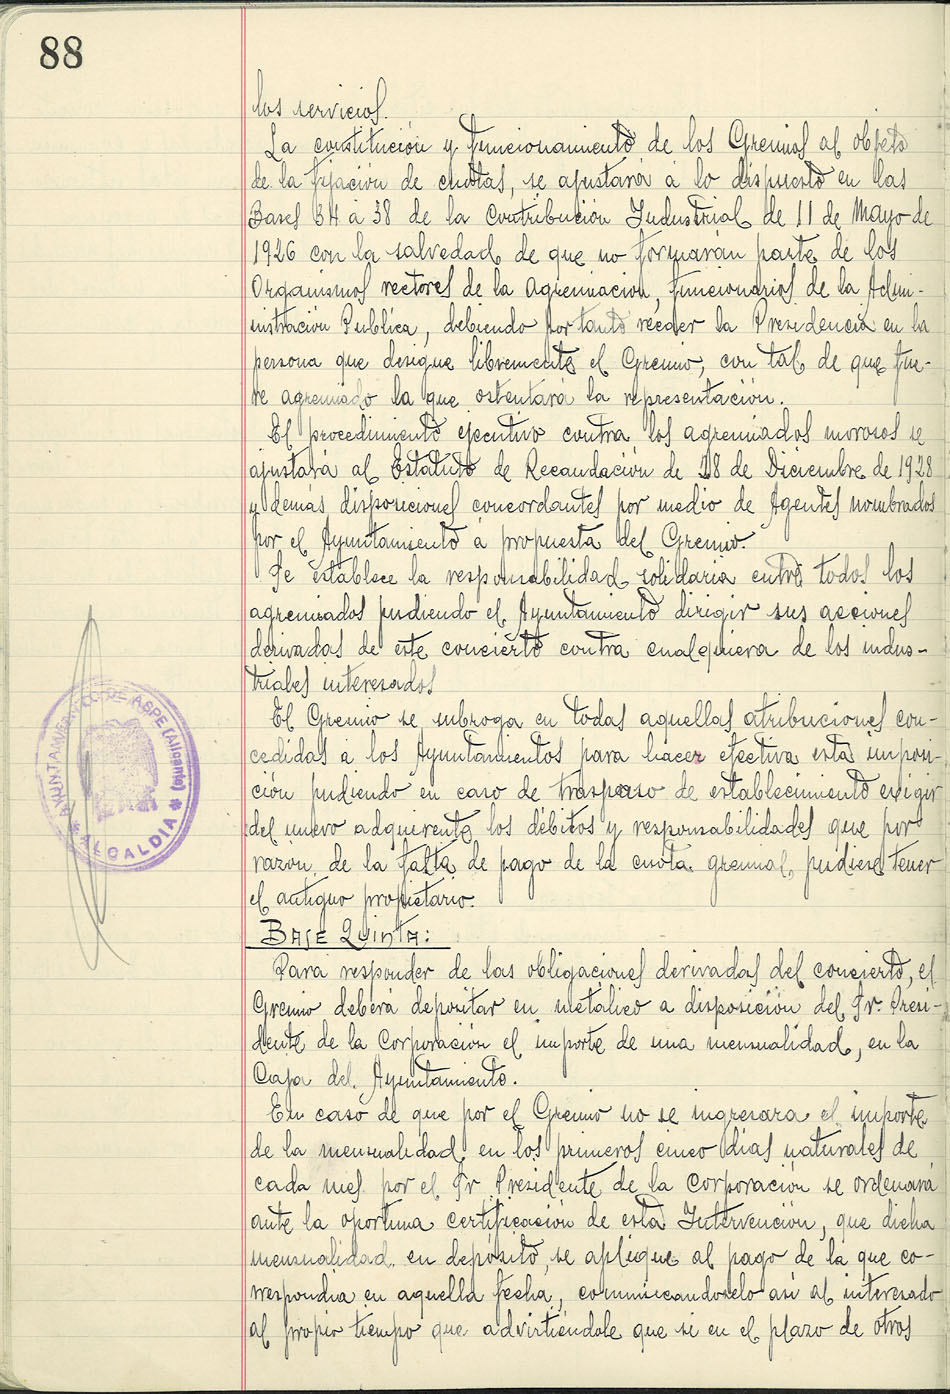 88
los servicios.
La constitución y funcionamiento de los Gremios al objeto
de la fijación de cuotas, se ajustará a lo dispuesto en las
Bases 34 a 38 de la Contribución Industrial de 11 de Mayo de
1926 con la salvedad de que no formarán parte de los
Organismos rectores de la Agremiación, funcionarios de la Admi-
nistración Publica, debiendo por tanto receder la Presidencia en la
persona que designe libremente el Gremio, con tal de que fue-
re agremiado la que ostentará la representación.
El procedimiento ejecutivo contra los agremiados morosos se
ajustará al Estatuto de Recaudación de 18 de Diciembre de 1928
y demás disposiciones concordantes por medio de Agentes nombrados
por el Ayuntamiento a propuesta del Gremio.
Se establece la responsabilidad solidaria entre todos los
agremiados pudiendo el Ayuntamiento dirigir sus acciones
derivadas de este concierto contra cualquiera de los indus-
triales interesados
El Gremio se subroga en todas aquellas atribuciones con-
cedidas a los Ayuntamientos para hacer efectiva esta imposi-
ción pudiendo en caso de traspaso de establecimiento exigir
del nuevo adquirente los débitos y responsabilidades que por
razón de la falta de pago de la cuota gremial pudiese tener
el antiguo propietario.
Base Quinta:
Para responder de las obligaciones derivadas del concierto, el
Gremio deberá depositar en metálico a disposición del Sr. Presi-
dente de la Corporación el importe de una mensualidad, en la
Caja del Ayuntamiento.
En caso de que por el Gremio no se ingresara el importe
de la mensualidad en los primeros cinco dias naturales de
cada mes por el Sr. Presidente de la Corporación se ordenará
ante la oportuna certificación de esta Intervención, que dicha
mensualidad en depósito, se aplique al pago de la que co-
rrespondia en aquella fecha, comunicandoselo asi al interesado
al propio tiempo que advirtiéndole que si en el plazo de otros
AYUNTAMIENTO DE ASPE (Alicante)
* ALCALDIA *